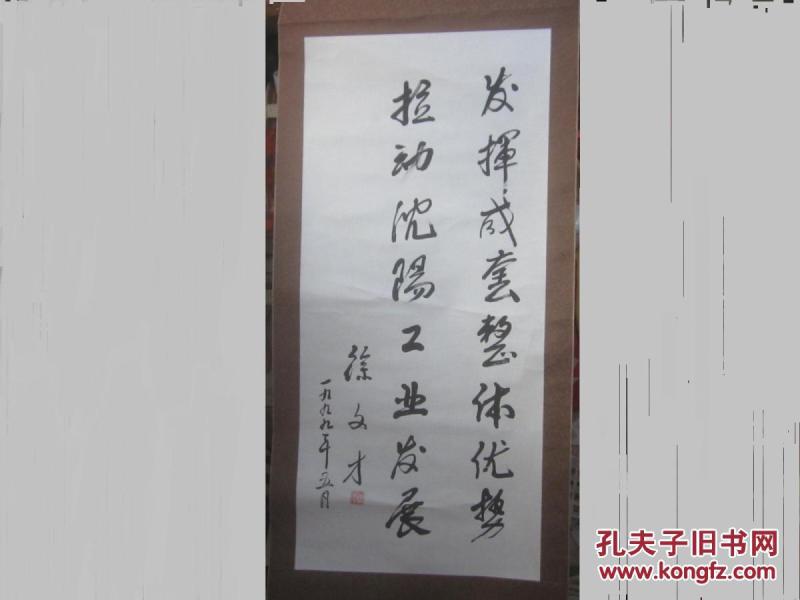 发揮成套整体优势
拉动沈陽工业发展
徐文才
一九九九年五月
孔夫子旧书网
www.kongfz.com